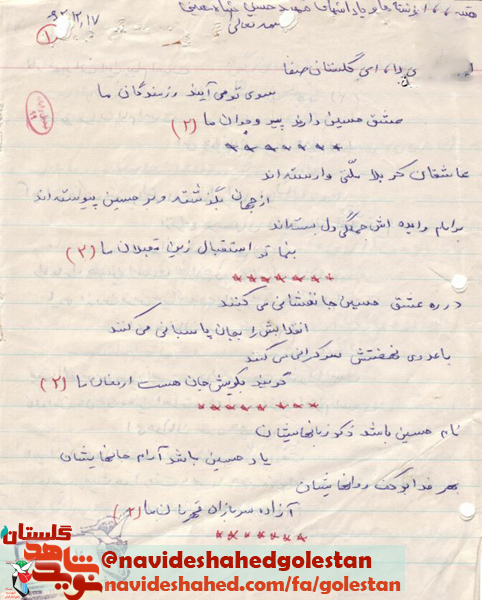 ۶۲،۱۲،۱۷
۱
بسمه تعالی
کربلا، ای گلستان صفا
سوی تو می آیند رزمندگان ما
عشق حسین دارند پیر و جوان ما (۲)
عاشقان کربلا وارسته‌اند
از جهان بگذشته و بر حسین پیوسته‌اند
بر امام و ایده اش جملگی دل بسته‌اند
بنما تو استقبال زین مقبلان ما (۲)
در ره عشق حسین جانفشانی می کنند
انقلابش را بجان پاسبانی می کنند
با عدوی نهضتش سرگرانی می کنند
گویند بکویش جان هست ارمغان ما (۲)
نام حسین باشد ذکر زبانهایشان
یاد حسین باشد آرام جانهایشان
بهر فدا بر کف روانهایشان
آزاده سربازان قهرمان ما (۲)
نوید شاهد
گلستان
@navideshahedgolestan
navideshahed.com/fa/golestan